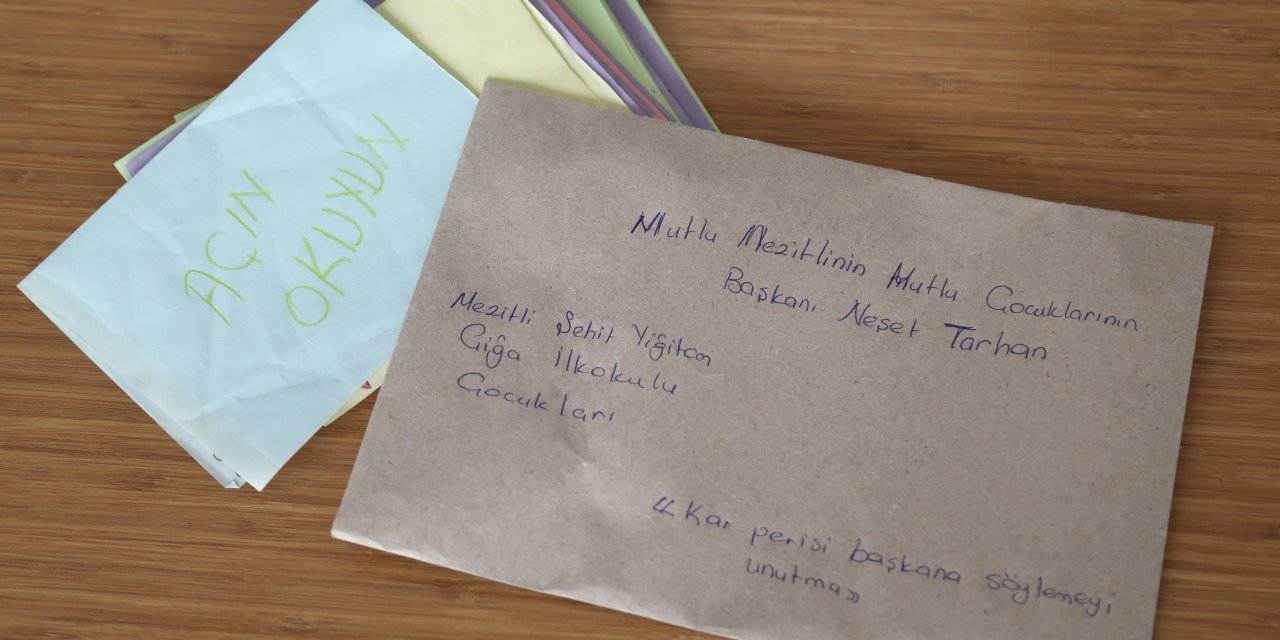 AÇIN
OKUYUN
Mutlu Mezitlinin Mutlu Çocuklarının
Başkanı Neşet Tarhan
Mezitli Şehit Yiğitcan
Çiğa İlkokulu
Çocukları
«Kar perisi başkana söylemeyi
unutma»